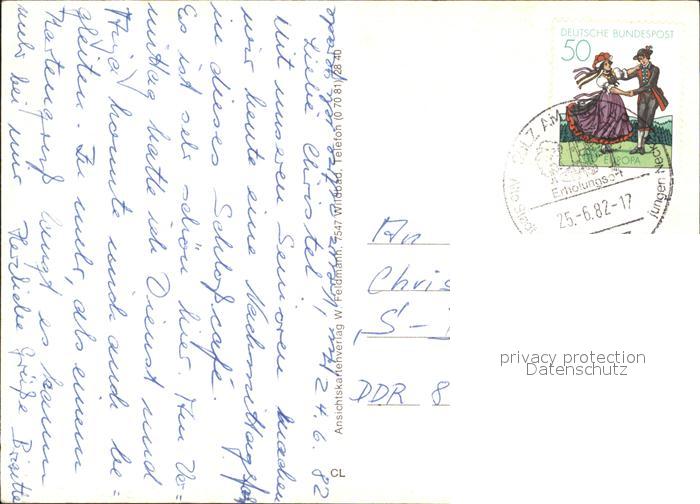 24.6.82
Liebe Christel,
Mit unseren Senioren machen
wir heute eine Nachmittagsfahrt
in dieses Schloßcafé.
Es ist sehr schön hier. Am Vor=
mittag hatte ich Dienst und
konnte mich auch be=
gleiten. Zu mehr, als einem
Kartengruß langt es kaum
mehr bei mir. Herzliche Grüße Brigitte
Ansichtskartenverlag W. Feldmann, 7547 Wildbad, Telefon (0 70 81) 28 40
CL
DEUTSCHE BUNDESPOST
50
EUROPA
SULZ AM
Erholungsort
Alte Stadt
jungen Neck
25.-6.82-17
An
Chris
S-
DDR 8
privacy protection
Datenschutz